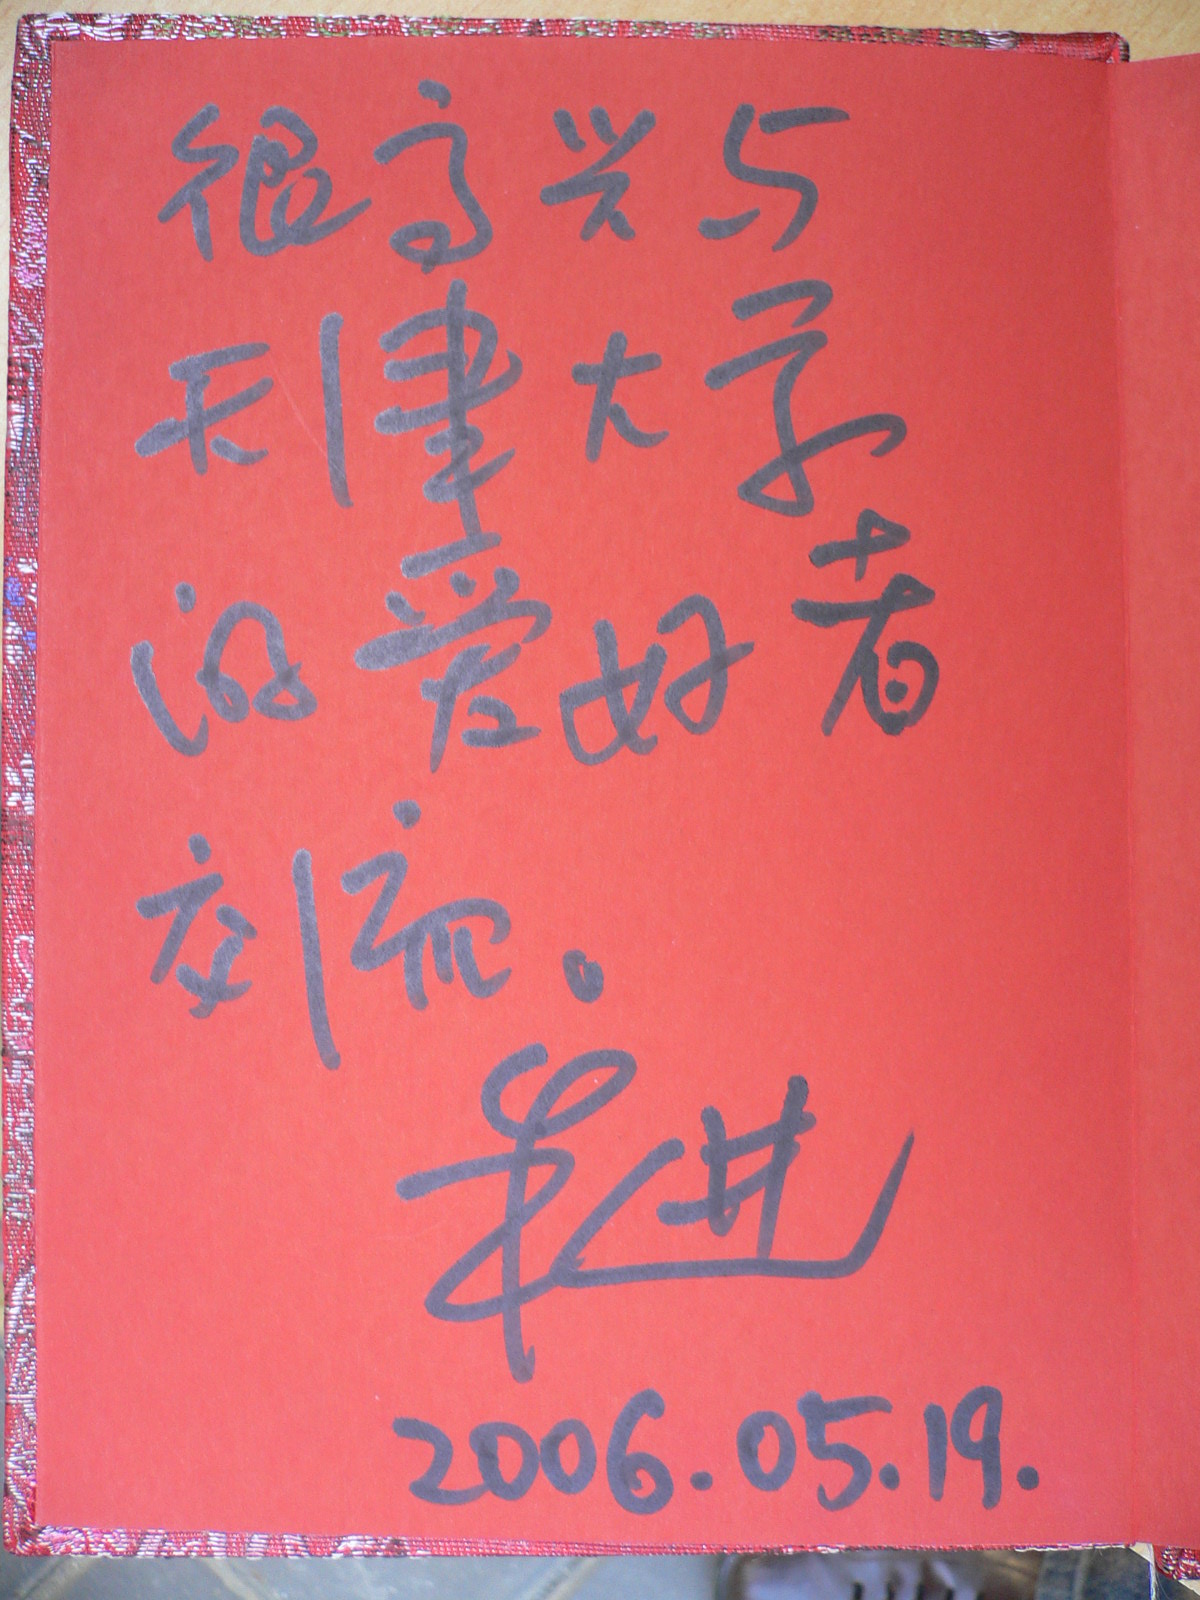 很高兴与
天津大学
的爱好者
交流。
2006.05.19.